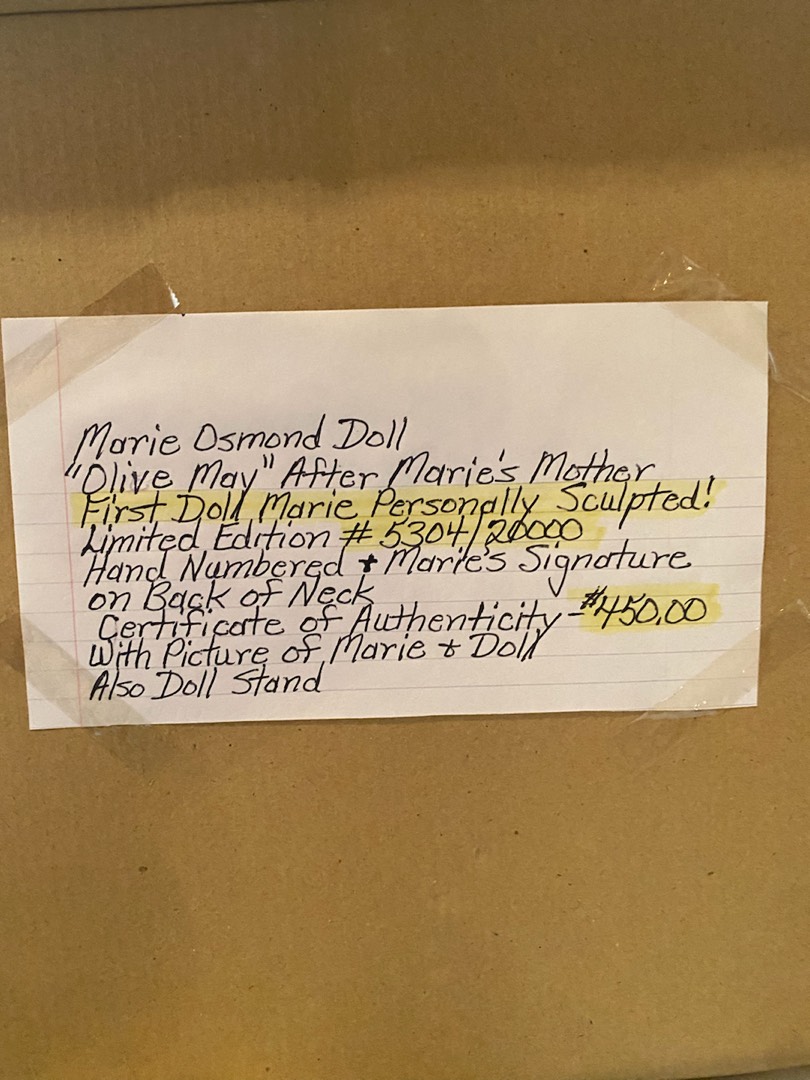 Marie Osmond Doll
"Olive May" After Marie's Mother
First Doll Marie Personally Sculpted!
Limited Edition # 5304/20000
Hand Numbered + Marie's Signature
on Back of Neck
Certificate of Authenticity - $450.00
With Picture of Marie & Doll
Also Doll Stand